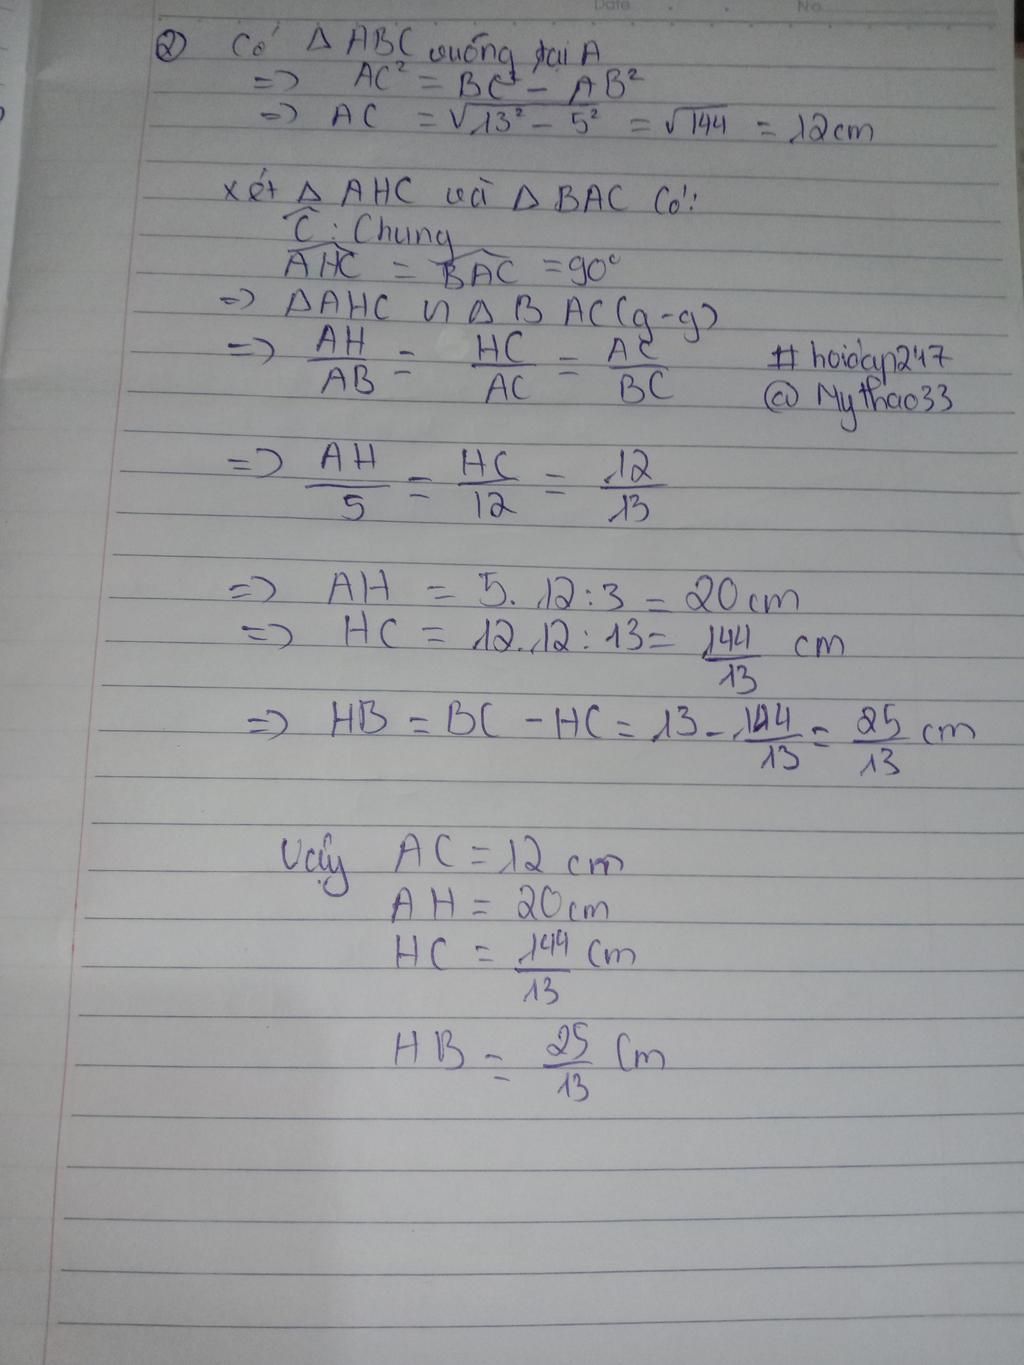 Date No
② Có Δ ABC vuông tại A
=> AC² = BC² - AB²
=> AC = √13² - 5² = √144 = 12cm
xét Δ AHC và Δ BAC có:
Ĉ : Chung
AHC = BAC = 90°
=> ΔAHC ∽ Δ BAC (g-g)
=> AH/AB = HC/AC = AC/BC
# hoidap247
@ Mythao33
=> AH/5 = HC/12 = 12/13
=> AH = 5.12:3 = 20cm
=> HC = 12.12:13 = 144/13 cm
=> HB = BC - HC = 13 - 144/13 = 25/13 cm
Vậy AC = 12 cm
AH = 20cm
HC = 144/13 cm
HB = 25/13 cm